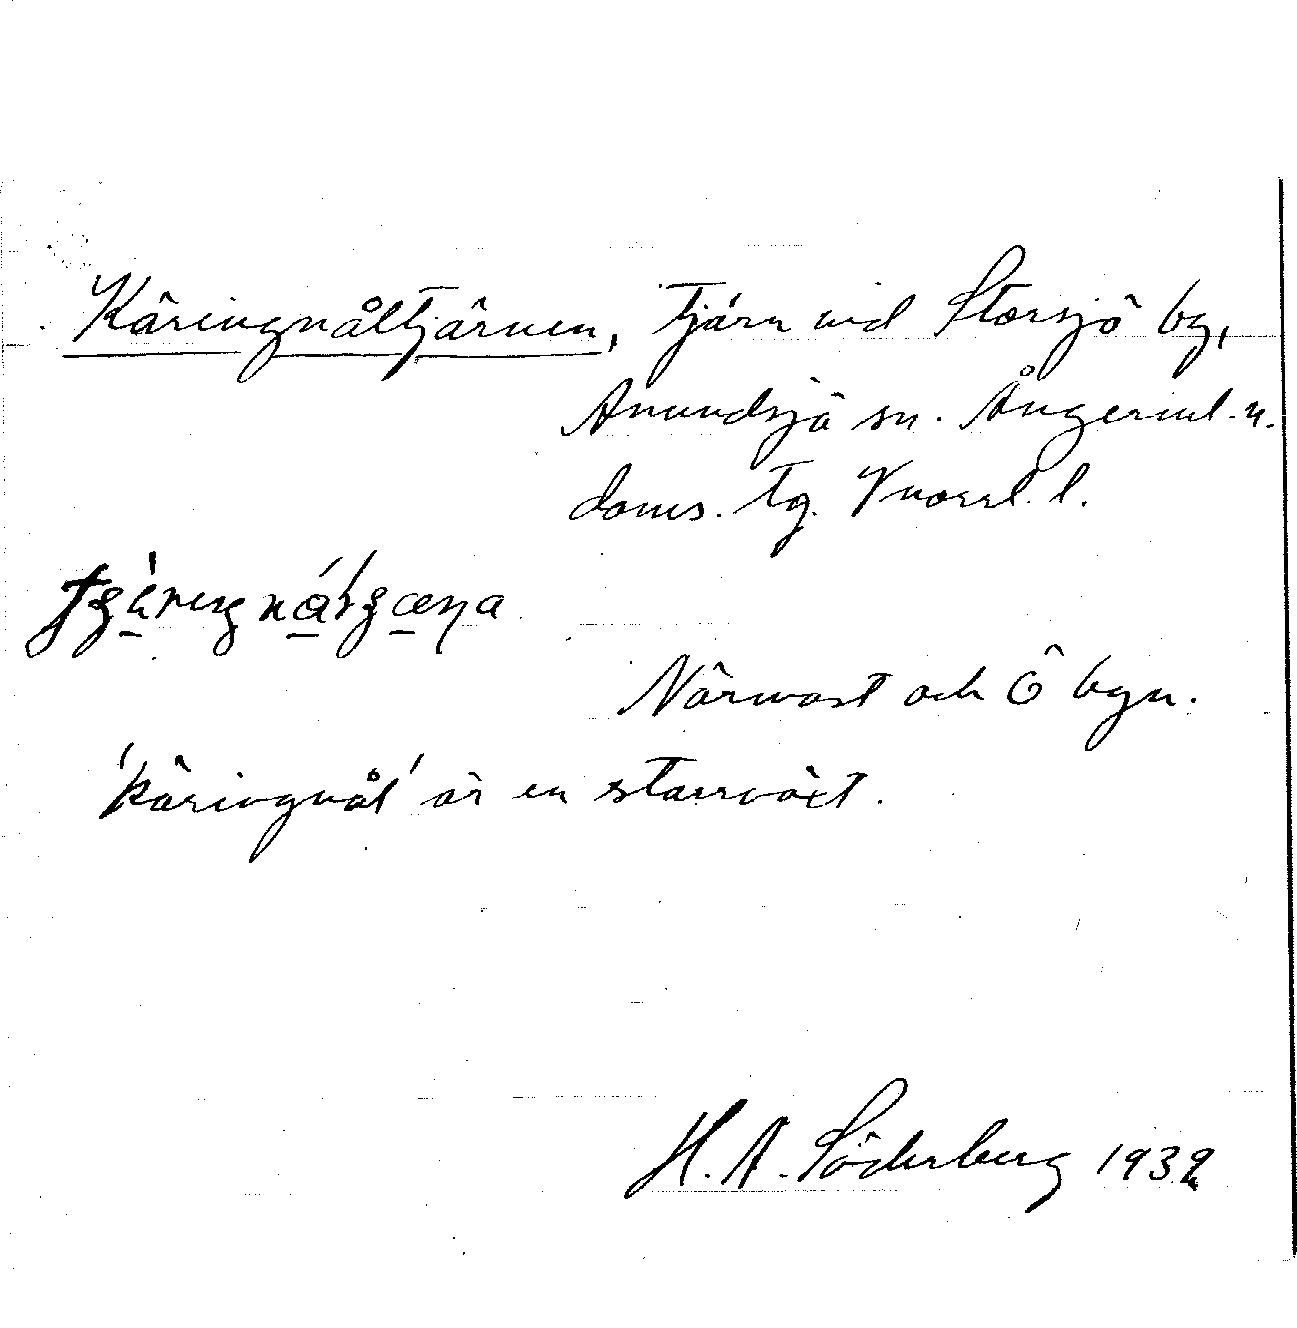 Käringnåltjärnen, tjärn vid Storsjö by,
Anundsjö sn. Ångerml. n.
doms. tg. Vnorrl. l.
Närvast och Ö byn.
'käringnål' är en starrväxt.
H. A. Söderberg 1932